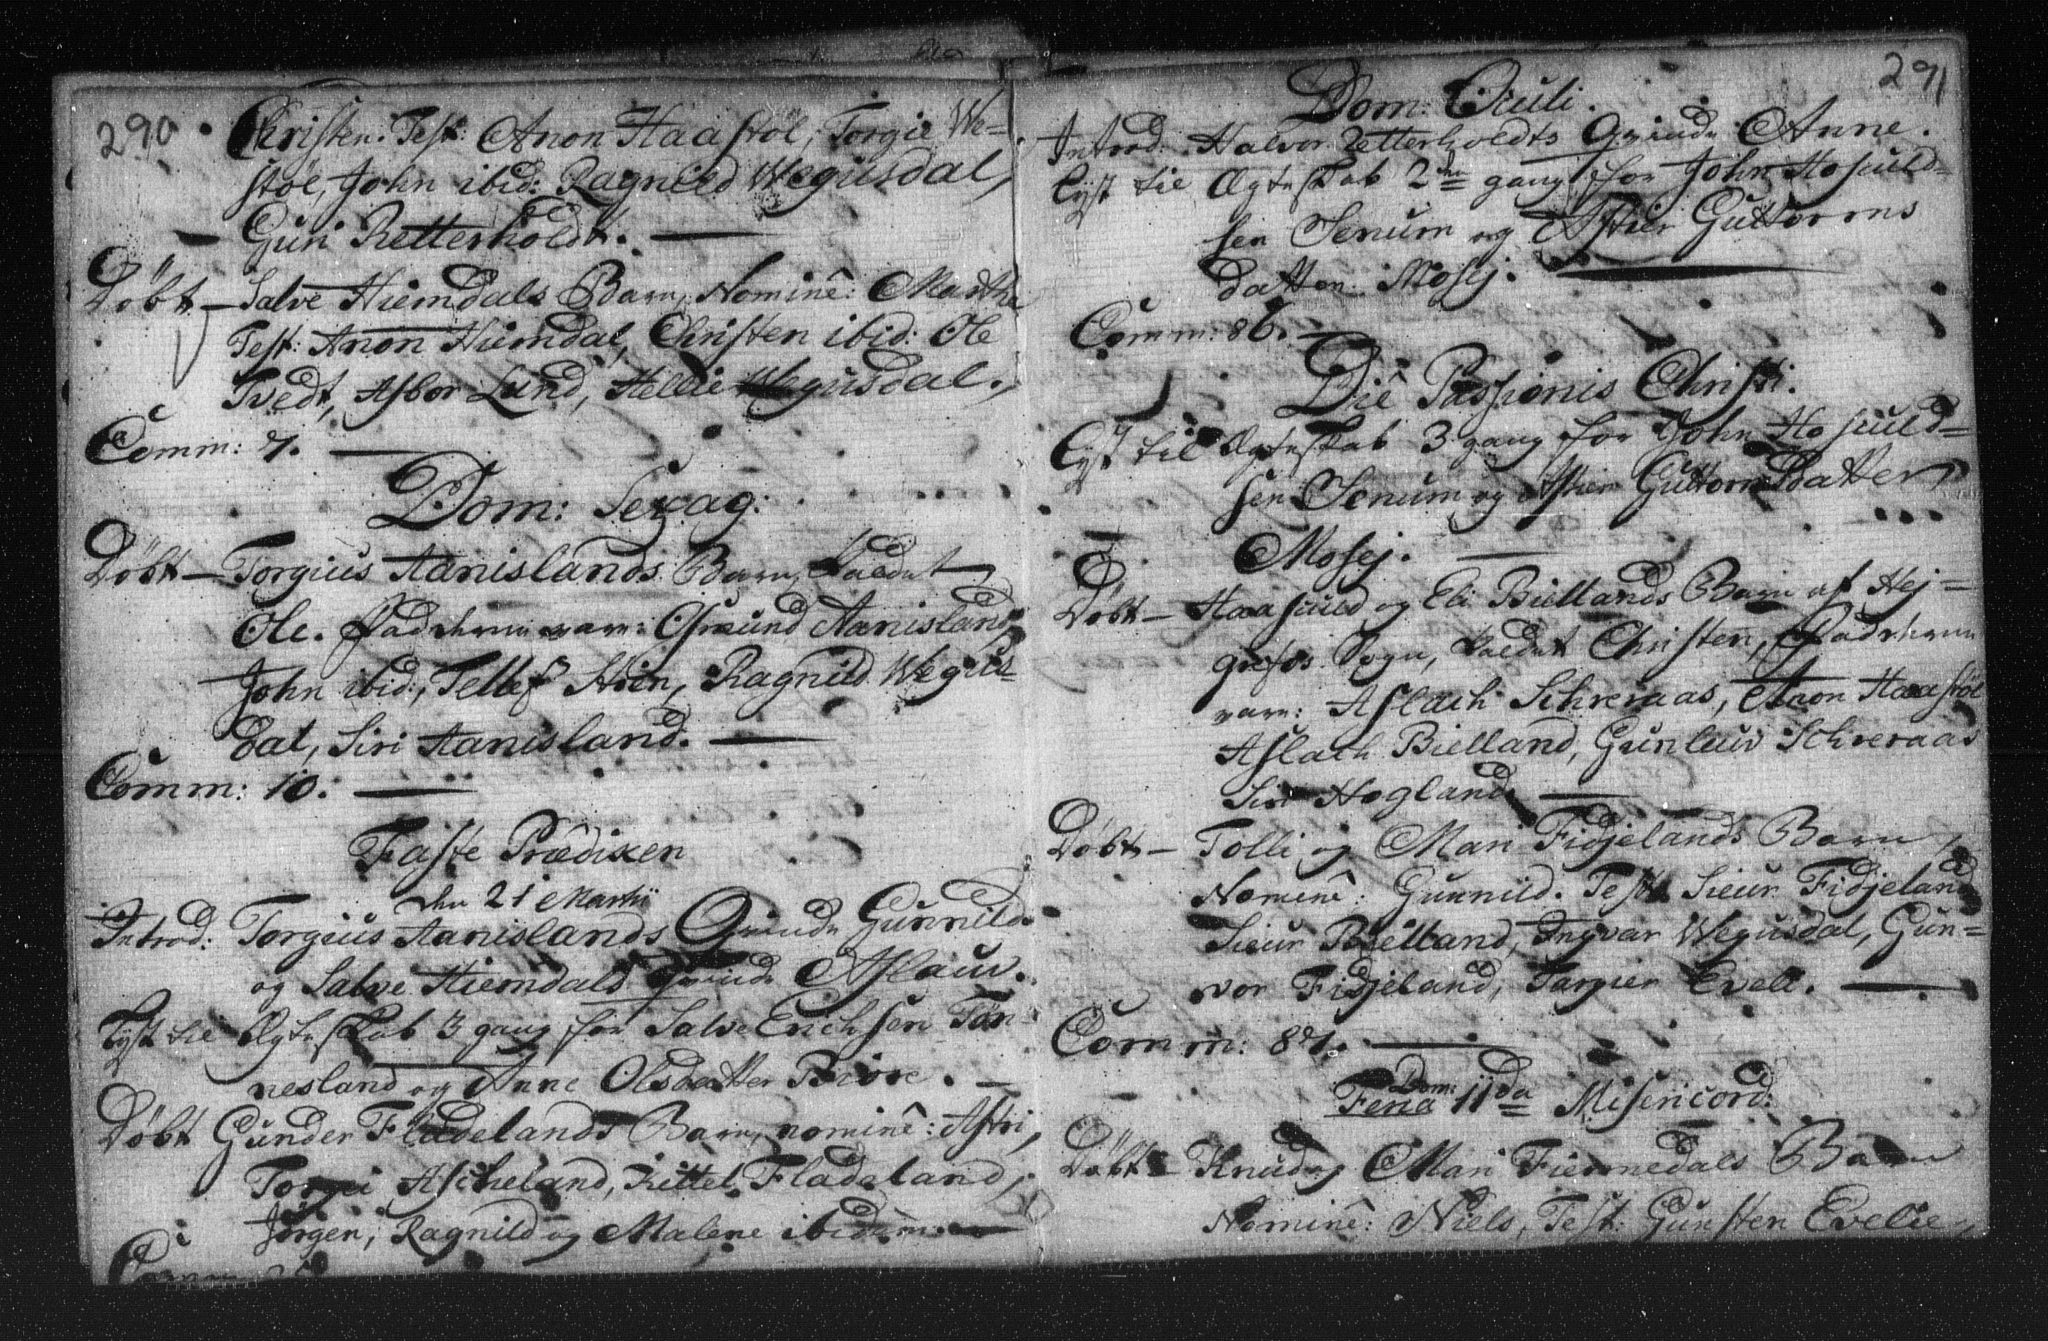 290
Christen. Test: Anon Haastøl, Torgie We-
støl, John ibid: Ragnild Wegusdal,
Guri Retterholdt.
Døbt - Salve Hiemdals Barn, Nominê: Marthe
Test: Anon Hiemdal, Christen ibid: Ole
Tvedt, Asbor Lund, Hellie Wegusdal.
Comm: 7.
Dom: Sexag:
Døbt - Torgius Aanislands Barn, kaldet
Ole. Fadderne vare: Osmund Aanisland
John ibid:, Tellef Hien, Ragnild Wegus-
dal, Siri Aanisland.
Comm: 10.
Faste Prædiken
den 21 Martii
Introd: Torgius Aanislands Qvinde Gunnild
og Salve Hiemdals Qvinde Aslauv.
Lyst til Ægteskab 3 gang for Salve Erichsen Tøn-
nesland og Anne Olsdatter Biore.
Døbt Gunder Fladelands Barn, nominê: Astri,
Torgei Ascheland, Kittel Fladeland,
Jørgen, Ragnild og Malene ibidem.
Comm:
291
Dom: Oculi.
Introd: Halvor Retterholdts Qvinde Anne.
Lyst til Ægteskab 2den gang for John Hosuld-
sen Senum og Astier Guttorms
datter Mosej.
Comm: 86.
Diê Passionis Christi.
Lyst til Ægteskab 3 gang for John Hosuld-
sen Senum og Astier Guttormsdatter
Mosej.
Døbt - Haasuld og Eli Biellands Barn af Hej-
grefos Sogn, kaldet Christen, Fadderne
vare: Aslach Schreraas, Anon Haastøl
Aslach Bielland, Gunleiv Schreraas
Siri Hogland.
Døbt - Tolli og Mari Fidjelands Barn,
Nominê: Gunnild. Test: Sieur Fidjeland
Sieur Bielland, Ingvar Wegusdal, Gun-
vor Fidjeland, Targier Evell.
Comm: 87.
Dom:
Feria 11da Misericord:
Døbt - Knud og Mari Fiermedals Barn
Nominê: Niels, Test: Gunsten Evelie,